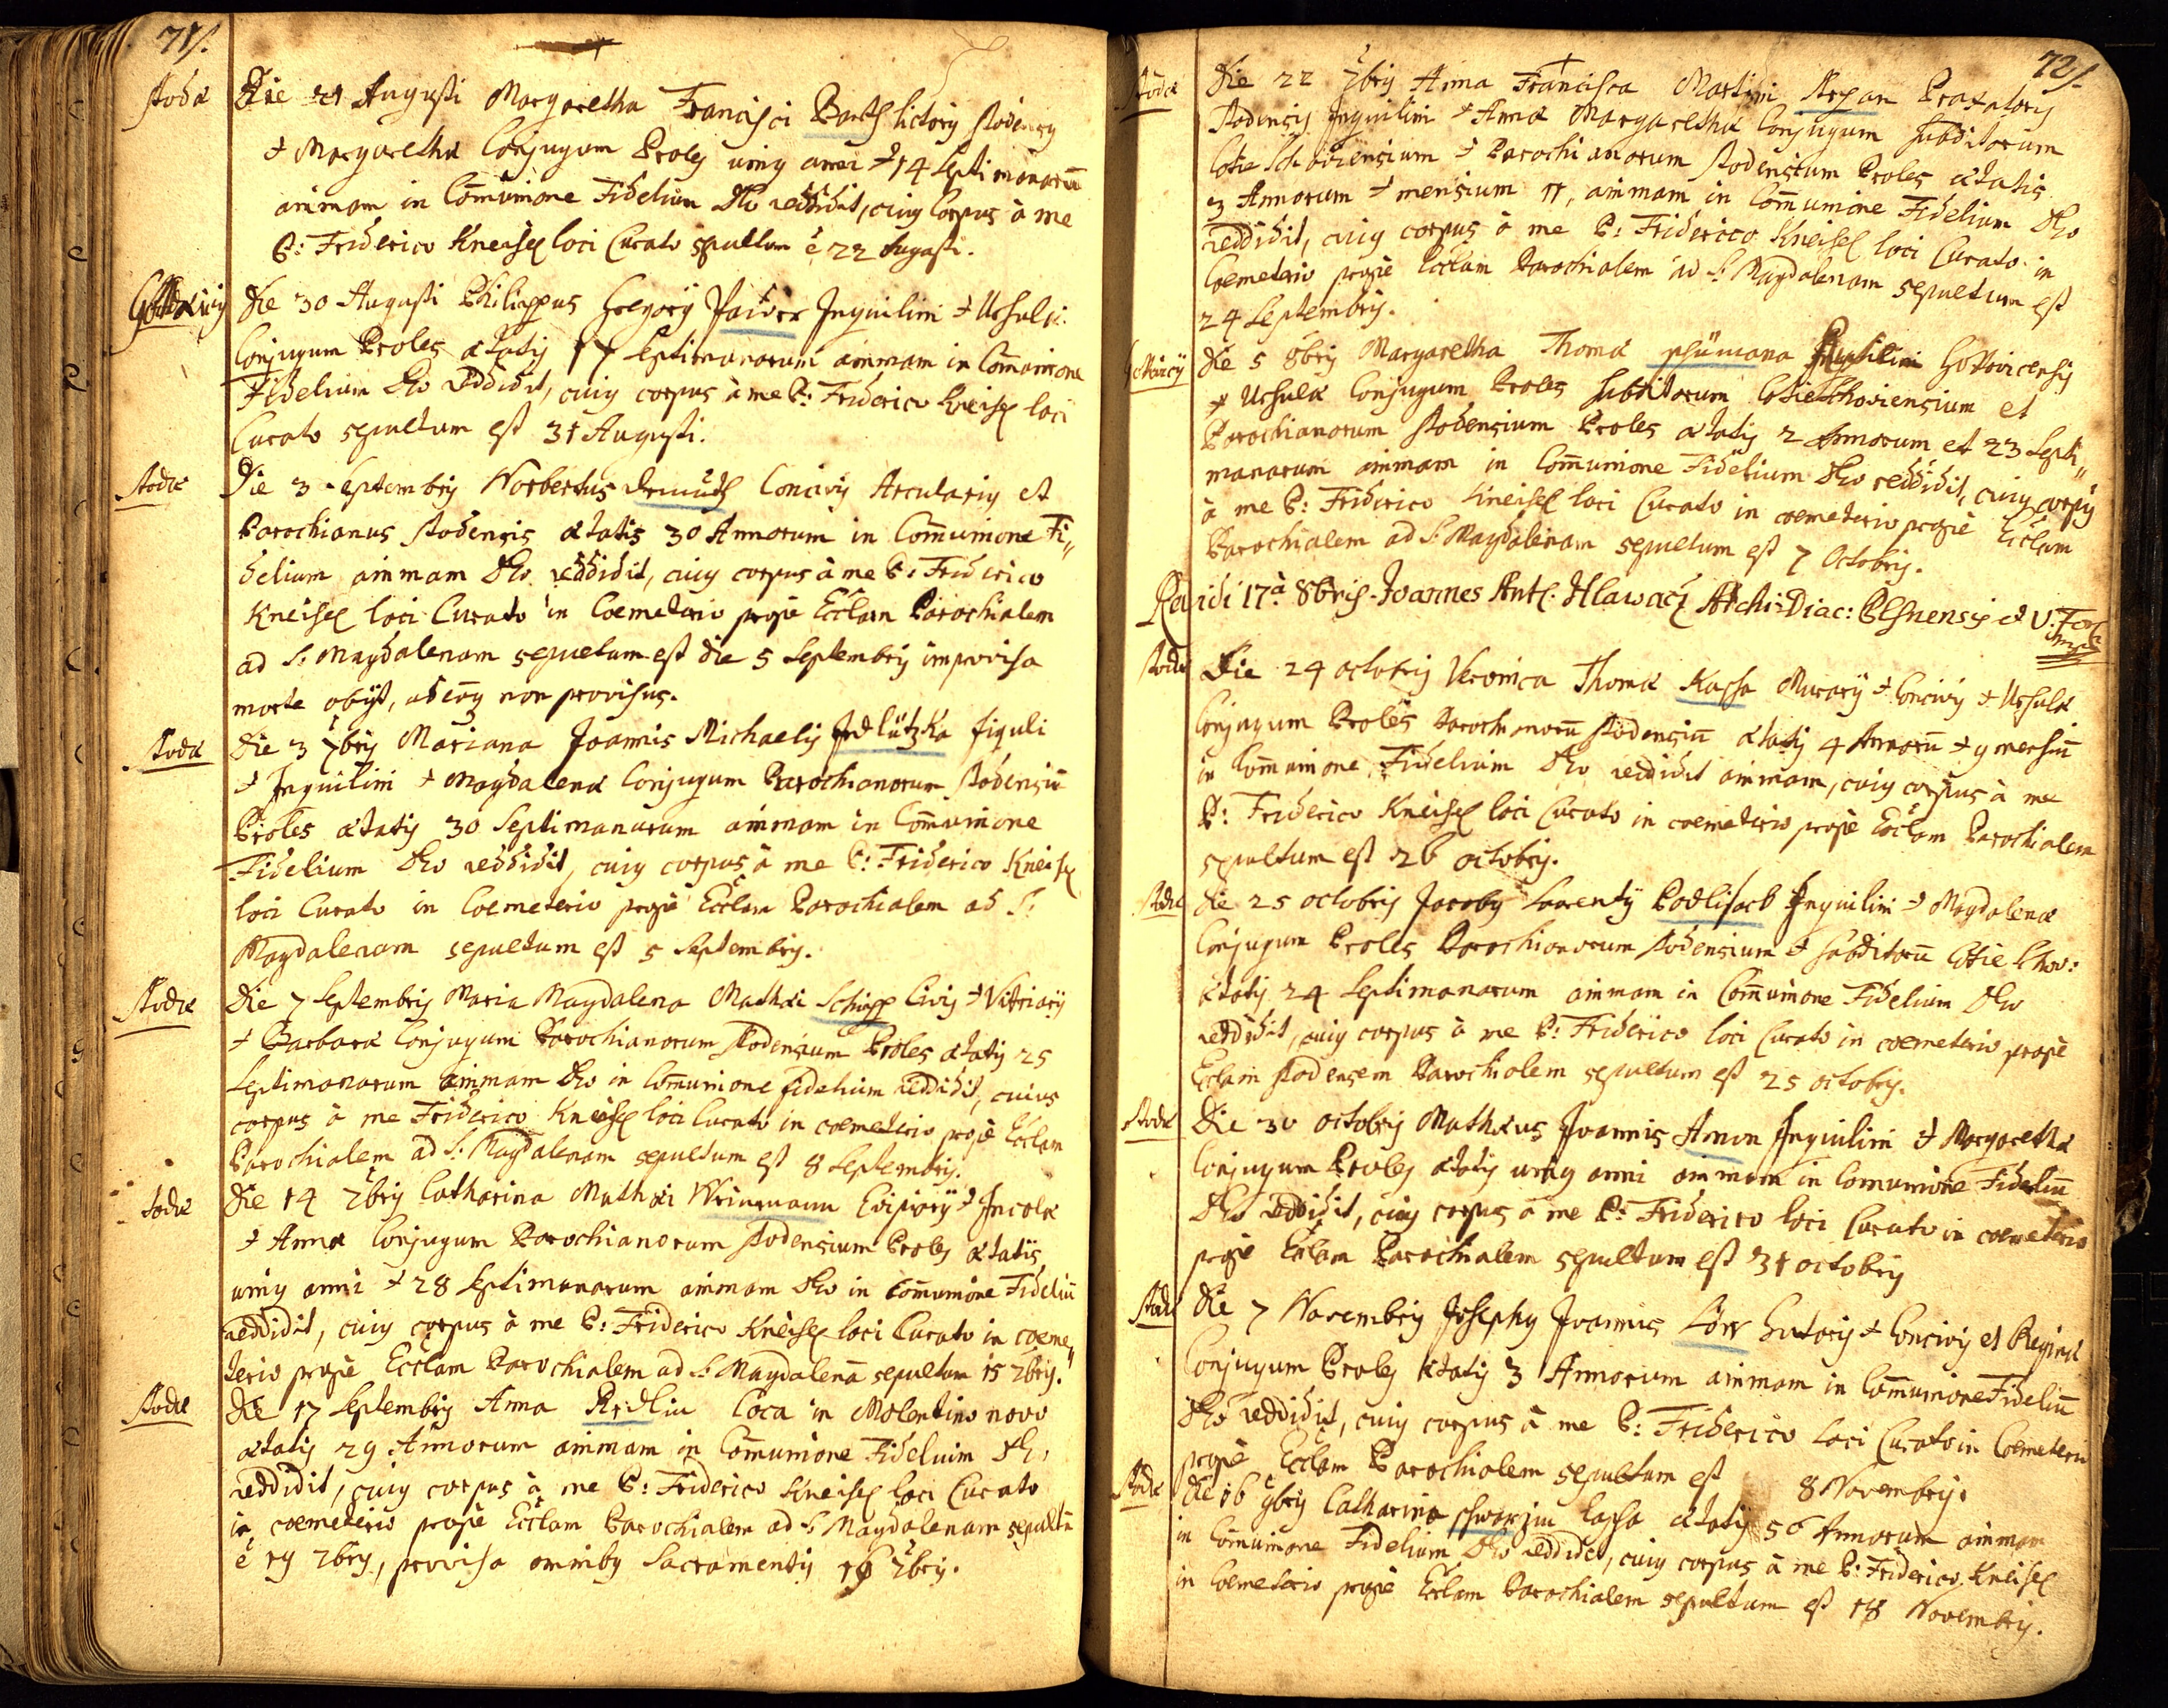 71.
Stodæ
Die 21 Augusti Margaretha Francisci Barth lictoris Stodensis
et Margarethæ Conjugum Proles unius anni et 14 Septimanarū
animam in Com̄unione Fidelium Deo reddidit, cuius Corpus à me
P: Friderico Kneisel loci Curato sepultum ē 22 Augusti.
Die 30 Augusti Philippus Gregorij Inquilini et Ursulæ
Conjugum Proles ætatis 17 septimanarum animam in Com̄unione
Fidelium Deo reddidit, cuius corpus à me P: Friderico Kneisel loci
Curato sepultum est 31 Augusti.
Stodæ
Die 3 Septembris Norbertus Concivis Arcularius et
Parochianus Stodensis ætatis 30 Annorum in Com̄unione Fi„
delium animam Deo reddidit, cuius corpus à me P: Friderico
Kneisel loci Curato in Coemeterio prope Eccl̄am Parochialem
ad S: Magdalenam sepultum est die 5 Septembris improvisa
morte obijt, non provisus.
Stodæ
Die 3 7bris Mariana Joannis Michaelis figuli
et Inquilini et Magdalenæ Conjugum Parochianorum Stodensiū
Proles ætatis 30 Septimanarum animam in Com̄unione
Fidelium Deo reddidit, cuius corpus à me P: Friderico Kneisel
loci Curato in Coemeterio prope Eccl̄am Parochialem ad S:
Magdalenam sepultum est 5 Septembris.
Stodæ
Die 7 Septembris Maria Magdalena Mathæi Schipp Civis et Vitriarij
et Barbaræ Conjugum Parochianorum Stodensium Proles ætatis 25
Septimanarum animam Deo in Com̄unione fidelium reddidit, cuius
corpus à me Friderico Kneisel loci Curato in coemeterio prope Eccl̄am
Parochialem ad S: Magdalenam sepultum est 8 Septembris.
Stodæ
Die 14 7bris Catharina Mathæi Weinmann et Incolæ
et Annæ Conjugum Parochianorum Stodensium Proles ætatis
unius anni et 28 Septimanarum animam Deo in Com̄unione Fideliū
reddidit, cuius corpus à me P: Friderico Kneisel loci Curato in coeme„
terio prope Eccl̄am Parochialem ad S: Magdalenā sepultum 15 7bris.
Stodæ
Die 17 Septembris Anna Coca in Molentino novo
ætatis 29 Annorum animam in Com̄unione Fidelium Deo
reddidit, cuius corpus à me P: Friderico Kneisel loci Curato
in coemeterio prope Eccl̄am Parochialem ad S: Magdalenam sepultū
ē 19 7bris, provisa omnibus Sacramentis 16 7bris.
72.
Stodæ
Die 22 7bris Anna Francisca Martini
Stodensis Inquilini et Annæ Margarethæ Conjugum subditorum
et Parochianorum Stodensium Proles ætatis
3 Annorum et mensium 11, animam in Com̄unione Fidelium Deo
reddidit, cuius corpus à me P: Friderico Kneisel loci Curato in
Coemeterio prope Eccl̄am Parochialem ad S: Magdalenam sepultum est
24 Septembris.
Die 5 8bris Margaretha Thomæ Inquilini
et Ursulæ Conjugum Proles subditorum et
Parochianorum Stodensium Proles ætatis 2 Annorum et 23 Septi„
manarum animam in Com̄unione Fidelium Deo reddidit, cuius corpus
à me P: Friderico Kneisel loci Curato in coemeterio prope Eccl̄am
Parochialem ad S: Magdalenam sepultum est 7 Octobris.
Revidi 17â 8bris. Joannes Ant: Hlawacz Archi:Diac: Plsnensis et V: For:
Stodæ
Die 24 octobris Veronica Thomæ Kassa Murarij et Concivis et Ursulæ
Conjugum Proles Parochianorū Stodensiū ætatis 4 Annorū et 9 mensiū
in Com̄unione Fidelium Deo reddidit animam, cuius corpus à me
P: Friderico Kneisel loci Curato in coemeterio prope Eccl̄am Parochialem
sepultum est 26 octobris.
Stodæ
Die 25 octobris Jacobus Laurentij Podlisack Inquilini et Magdalenæ
Conjugum Proles Parochianorum Stodensium et subditorū
ætatis 24 Septimanarum animam in Com̄unione Fidelium Deo
reddidit, cuius corpus à me P: Friderico loci Curato in coemeterio prope
Eccl̄am Stodensem Parochialem sepultum est 25 octobris.
Stodæ
Die 30 octobris Mathæus Joannis Amon Inquilini et Margarethæ
Conjugum Proles ætatis unius anni animam in Comunione Fideliū
Deo reddidit, cuius corpus à me P: Friderico loci Curato in coemeterio
prope Eccl̄am Parochialem sepultum est 31 octobris
Stodæ
Die 7 Novembris Josephus Joannis Lörr Sutoris et Concivis et Reginæ
Conjugum Proles ætatis 3 Annorum animam in Com̄unione Fideliū
Deo reddidit, cuius corpus à me P: Friderico loci Curato in Coemeterio
prope Eccl̄am Parochialem sepultum est 8 Novembris.
Stodæ
Die 16 9bris Catharina Schwarzin ætatis 56 Annorum animam
in Com̄unione Fidelium Deo reddidit, cuius corpus à me P: Friderico Kneisel
in Coemeterio prope Eccl̄am Parochialem sepultum est 18 Novembris.